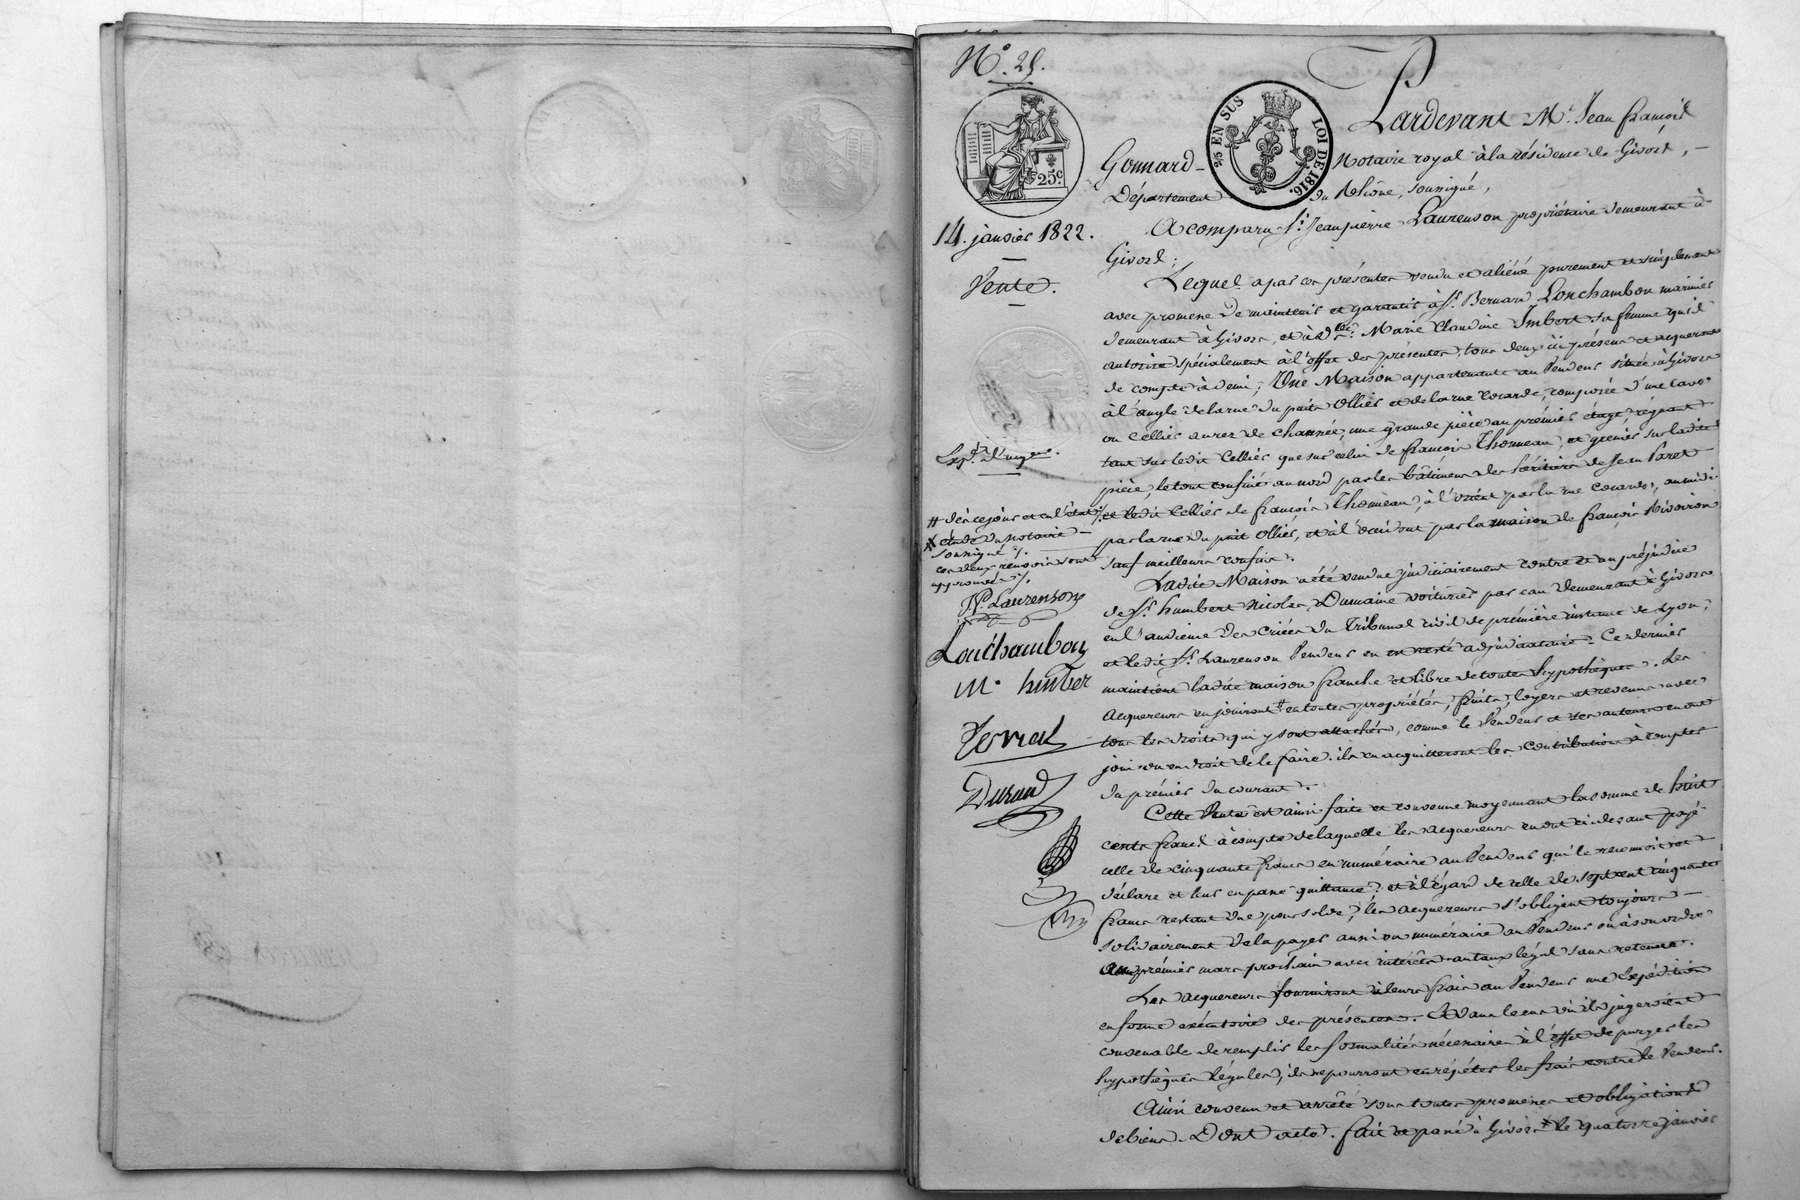 N.º 25.
25 c.
2/5 EN SUS LOI DE 1816.
14. janvier 1822.
Vente.
Exp.on d'urgen.
# dès ce jour et en l'état ./.
X étude du notaire
soussigné ./.
ces deux renvois sont
approuvés ./.
JP. Laurenson
Lonchambon
M. himber
Terral
Durand
Pardevant M.e Jean françois
Gonnard notaire royal à la résidence de Givors,
Département du Rhône, soussigné,
A comparu S.r Jean pierre Laurenson propriétaire demeurant à
Givors;
Lequel a par ces présentes vendu et aliéné purement et simplement
avec promesse de maintenir et garantir à S.r Bernard Lonchambon marinier
demeurant à Givors, et à d.lle Marie Claudine Imbert sa femme qu'il
autorise spécialement à l'effet des présentes, tous deux ici présens et acquereurs
de compte à demi; Une Maison appartenante au Vendeur située à Givors
à l'angle de la rue du puits Ollier et de la rue Coarde, composée d'une cave
ou cellier au rez de chaussée, une grande pièce au prémier étage régnant
tant sur ledit Cellier que sur celui de françois Thomeau, et grenier sur ladite
pièce, le tout confiné au nord par les bâtimens des héritiers de Jean Paret
et ledit Cellier de françois Thomeau, à l'orient par la rue Coarde, au midi
par la rue du puit Ollier, et à l'occident par la maison de françois Rivoiron
sauf meilleurs confins.
Ladite Maison a été vendue judiciairement contre et au préjudice
de S.r humbert Nicolas Dumaine voiturier par eau demeurant à Givors
en l'audience des criées du Tribunal civil de première instance de Lyon;
et ledit S.r Laurenson Vendeur en est resté adjudicataire. Ce dernier
maintient ladite maison franche et libre de toutes hypothèques. Les
Acquereurs en jouiront # en toutes propriétés, fruits, loyers et revenus avec
tous les droits qui y sont attachés, comme le Vendeur et ses auteurs en ont
joui ou eu droit de le faire. ils en acquitteront les contributions à compter
du prémier du courant.
Cette Vente est ainsi faite et convenue moyennant la somme de huit
cents francs à compte de laquelle les acquereurs en ont ci devant payé
celle de cinquante francs en numéraire au Vendeur qui le reconnoit et
déclare et leur en passe quittance; et à l'égard de celle de sept cent cinquante
francs restant due pour solde, les acquereurs s'obligent toujours
solidairement de la payer aussi en numéraire au Vendeur ou à son ordre
au prémier mars prochain avec intérêts au taux légal sans retenue.
Les acquereurs fourniront à leurs frais au Vendeur une Expédition
en forme exécutoire des présentes. Et dans le cas où ils jugeroient
convenable de remplir les formalités nécessaires à l'effet de purger les
hypothèques légales, ils ne pourront en répéter les frais contre le Vendeur.
Ainsi convenu et arrêté sous toutes promesses et obligations
de biens. Dont acte. fait et passé à Givors X le quatorze janvier